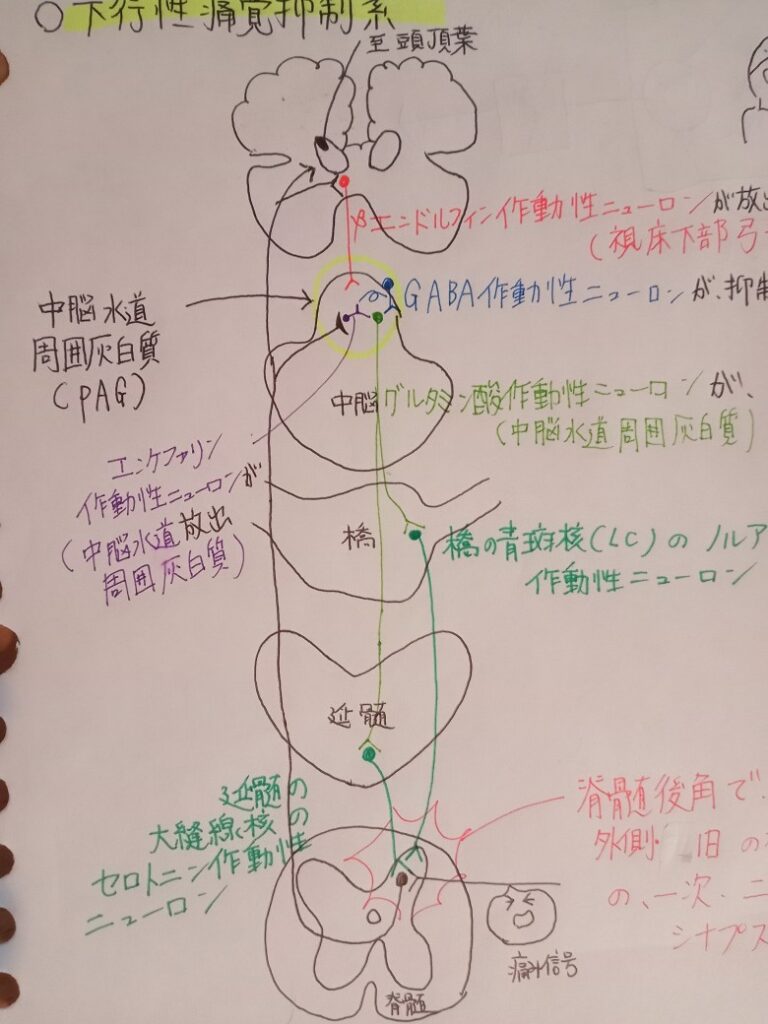 ○下行性痛覚抑制系
頭頂葉
βエンドルフィン作動性ニューロンが放出
(視床下部弓
中脳水道
周囲灰白質
(PAG)
GABA作動性ニューロンが、抑制
中脳
グルタミン酸作動性ニューロンが、
(中脳水道周囲灰白質)
エンケファリン
作動性ニューロンが
(中脳水道 放出
周囲灰白質)
橋
橋の青斑核(LC)のノルア
作動性ニューロン
延髄
延髄の
大縫線核の
セロトニン作動性
ニューロン
脊髄後角で、
外側・旧の
の、一次、二
シナプス
痛み信号
脊髄